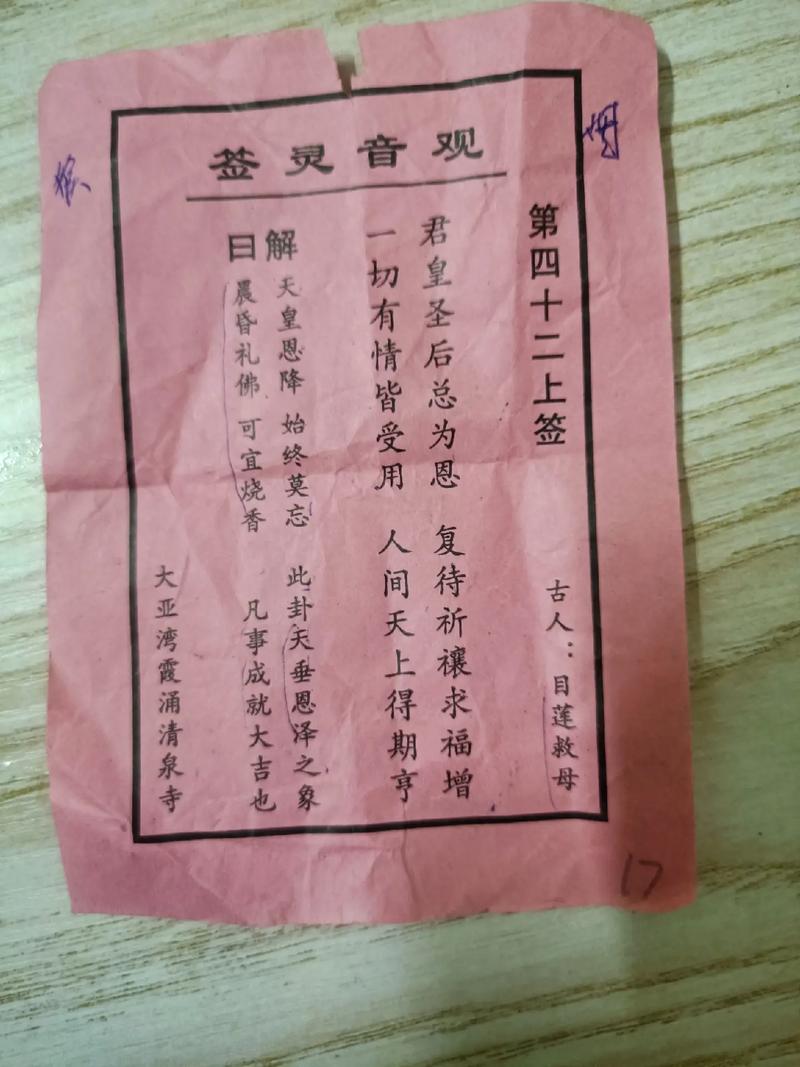 观音灵签
第四十二上签
古人：目莲救母
君皇圣后总为恩 复待祈禳求福增
一切有情皆受用 人间天上得期亨
解曰
天皇恩降 始终莫忘 此卦天垂恩泽之象
晨昏礼佛 可宜烧香 凡事成就大吉也
大亚湾霞涌清泉寺
17